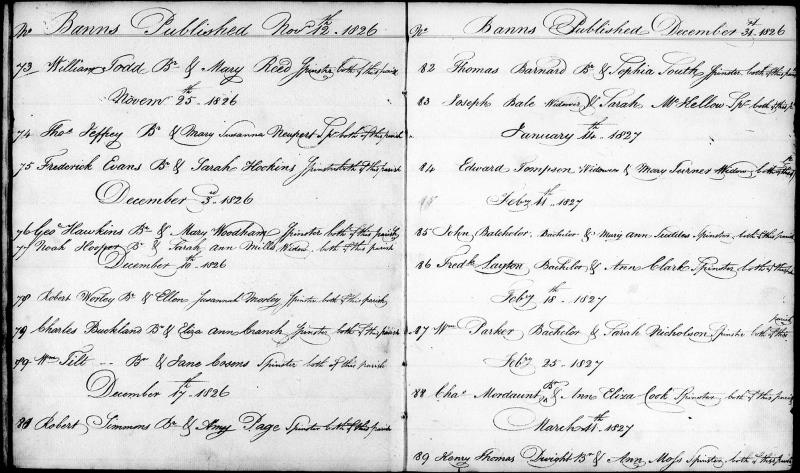 No Banns Published Novr 12th 1826
73 William Todd Br & Mary Reed Spinster both of this parish
Novem 25th 1826
74 Thos Jeffrey Br & Mary Susanna Newport Sp both of this parish
75 Frederick Evans Br & Sarah Hockins Spinster both of this parish
December 3rd 1826
76 Geo Hawkins Br & Mary Woodham Spinster both of this parish
77 Noah Hooper Br & Sarah ann Mills Widow both of this parish
December 10th 1826
78 Robert Worley Br & Ellen Susannah Mosley Spinster both of this parish
79 Charles Buckland Br & Eliza ann Cranch Spinster both of this parish
79 Wm Tilt -- Br & Jane Cosens Spinster both of this parish
December 17th 1826
80 Robert Simmons Br & Amy Page Spinster both of this parish
No Banns Published December 31st 1826
82 Thomas Barnard Br & Sophia South Spinster both of this parish
83 Joseph Bale Widower & Sarah McHellow Sp both of this p
January 14th 1827
84 Edward Tompson Widower & Mary Turner Widow both of this
Feby 11th 1827
85 John Batchelor Bachelor & Mary ann Spinster both of this parish
86 Fredk Layton Bachelor & Ann Clark Spinster both of this
Feby 18th 1827
87 Wm Parker Bachelor & Sarah Nicholson Spinster both of this parish
Feby 25 1827
88 Chas Mordaunt Br & Ann Eliza Cock Spinster both of this parish
March 11th 1827
89 Henry Thomas Dwight Br & Ann Moss Spinster both of this parish